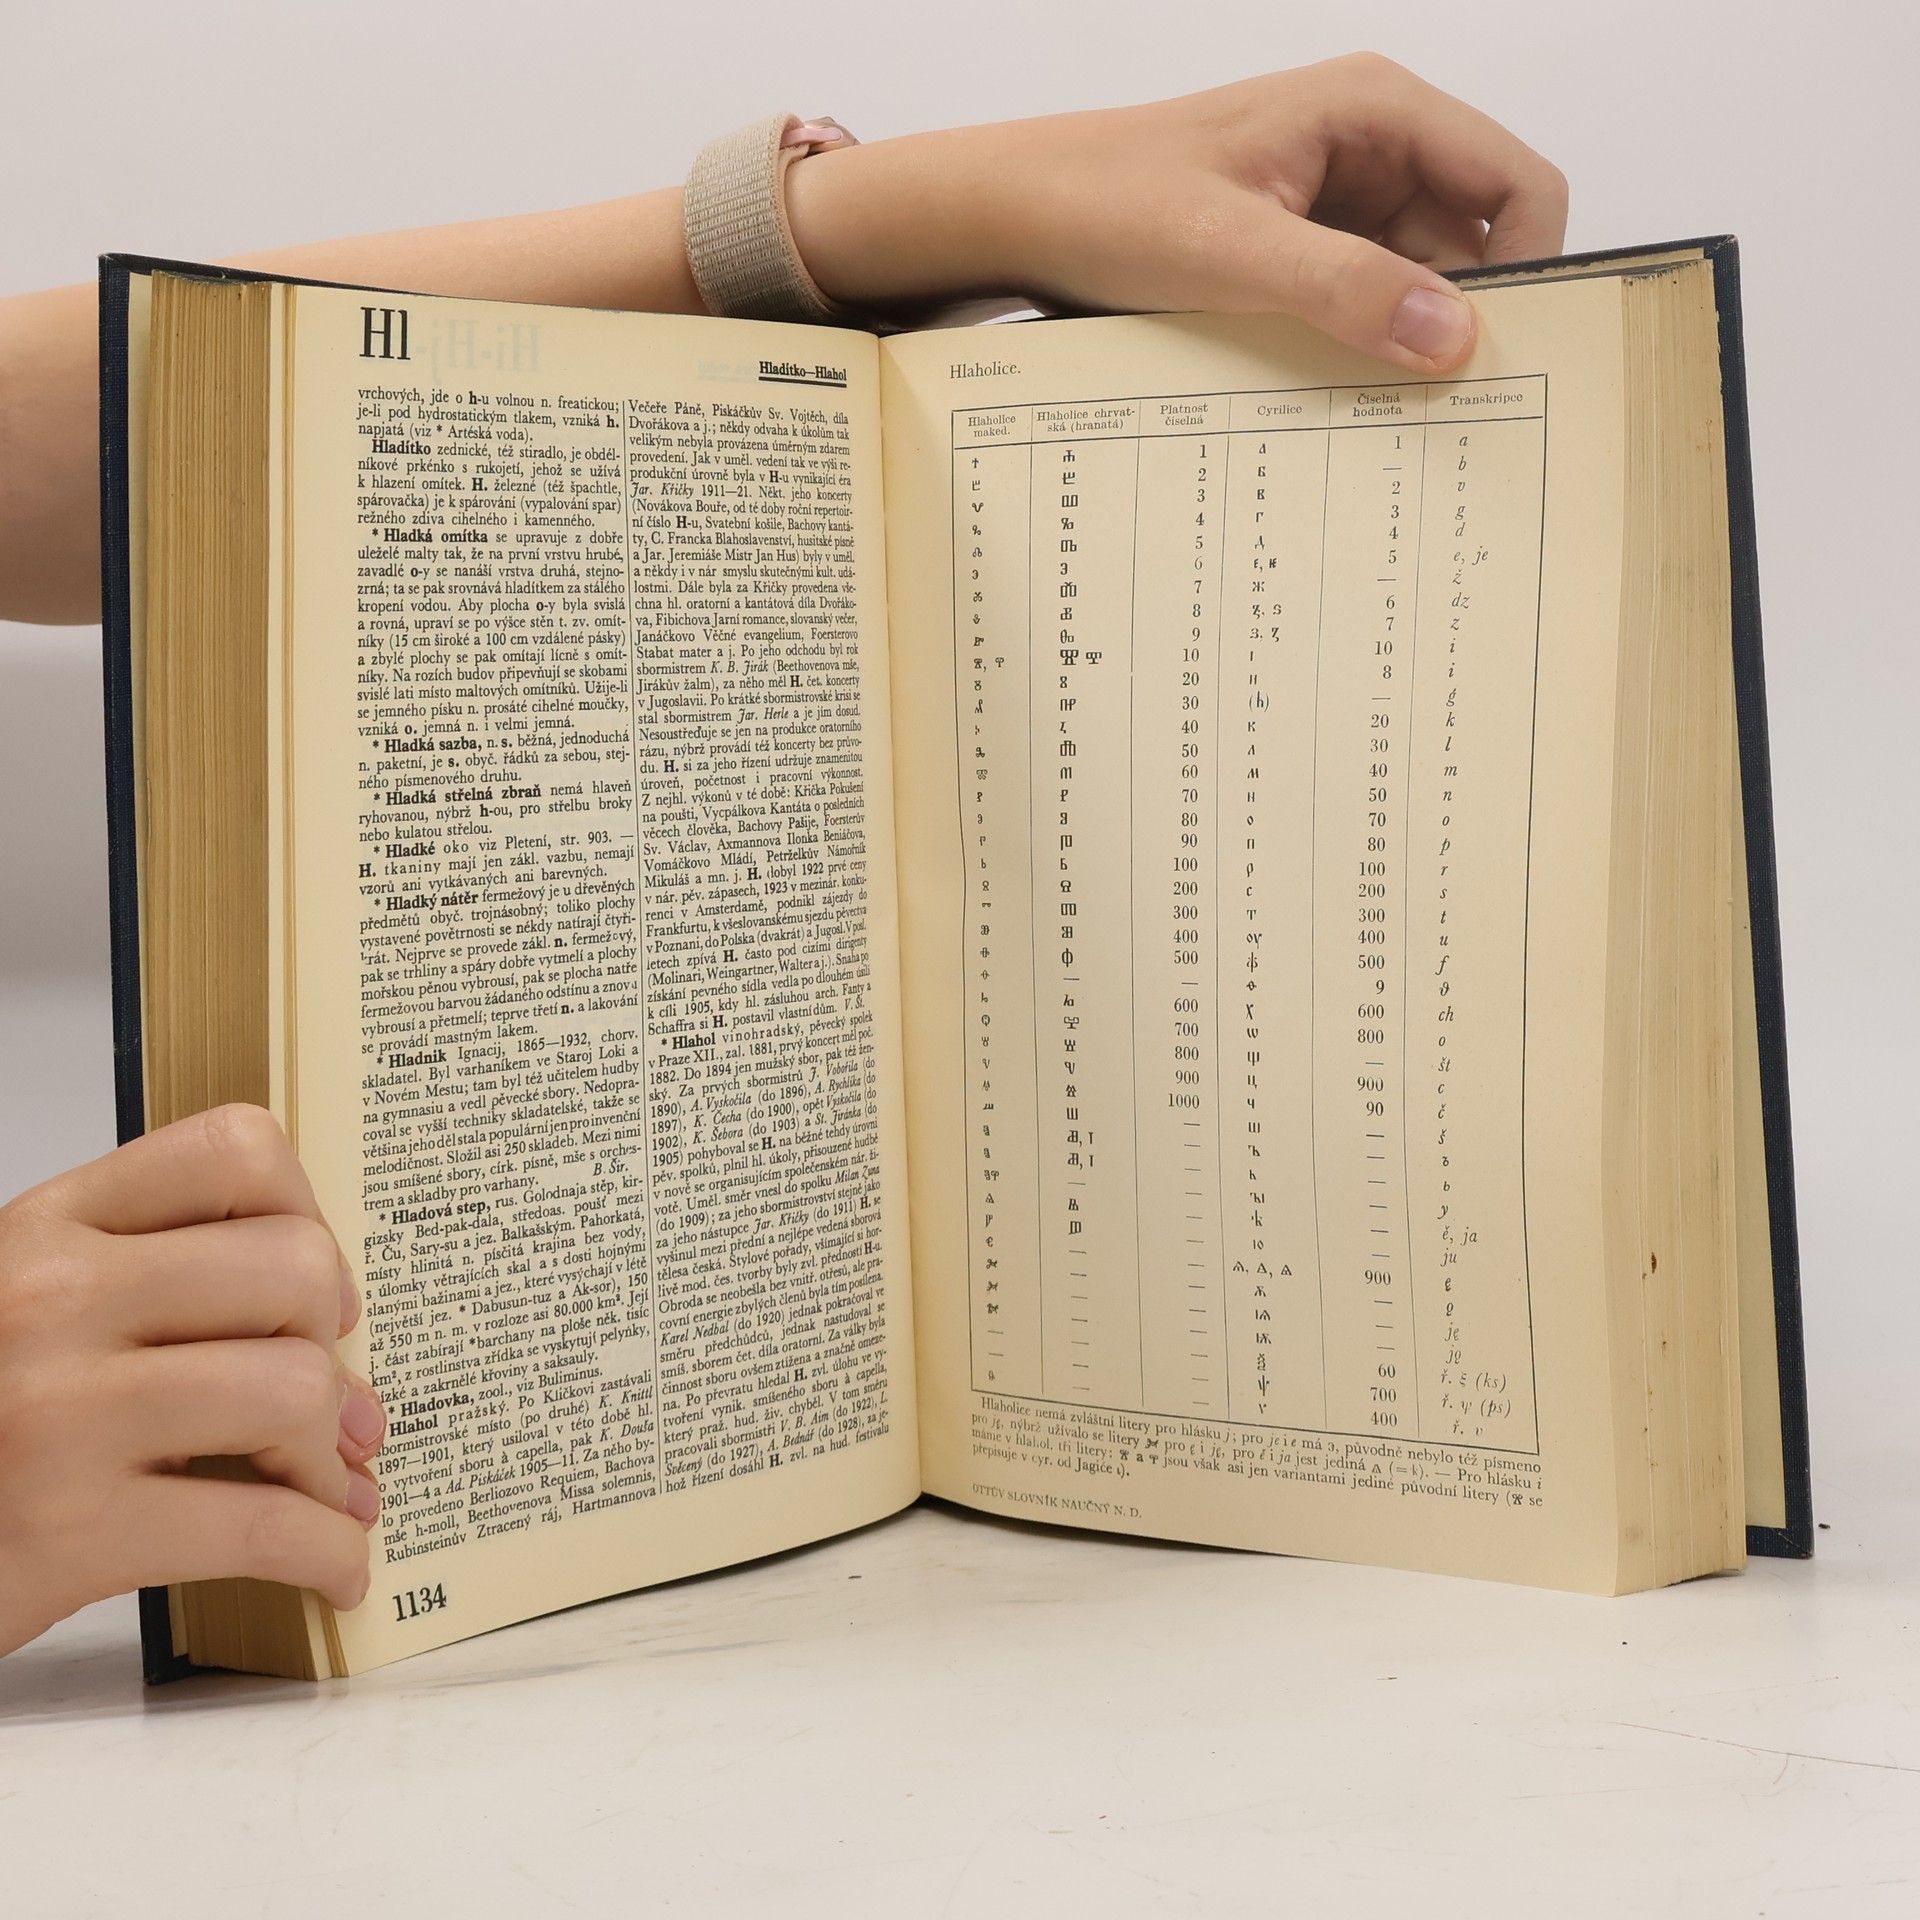 Hl
Hladítko—Hlahol
vrchových, jde o h-u volnou n. freatickou;
je-li pod hydrostatickým tlakem, vzniká h.
napjatá (viz * Artéská voda).
Hladítko zednické, též stiradlo, je obdél-
níkové prkénko s rukojetí, jehož se užívá
k hlazení omítek. H. železné (též špachtle,
spárovačka) je k spárování (vypalování spar)
režného zdiva cihelného i kamenného.
* Hladká omítka se upravuje z dobře
uleželé malty tak, že na první vrstvu hrubé,
zavadlé o-y se nanáší vrstva druhá, stejno-
zrná; ta se pak srovnává hladítkem za stálého
kropení vodou. Aby plocha o-y byla svislá
a rovná, upraví se po výšce stěn t. zv. omít-
níky (15 cm široké a 100 cm vzdálené pásky)
a zbylé plochy se pak omítají lícně s omít-
níky. Na rozích budov připevňují se skobami
svislé lati místo maltových omítníků. Užije-li
se jemného písku n. prosáté cihelné moučky,
vzniká o. jemná n. i velmi jemná.
* Hladká sazba, n. s. běžná, jednoduchá
n. paketní, je s. obyč. řádků za sebou, stej-
ného písmenového druhu.
* Hladká střelná zbraň nemá hlaveň
ryhovanou, nýbrž h-ou, pro střelbu broky
nebo kulatou střelou.
* Hladké oko viz Pletení, str. 903. —
H. tkaniny mají jen zákl. vazbu, nemají
vzorů ani vytkávaných ani barevných.
* Hladký nátěr fermežový je u dřevěných
předmětů obyč. trojnásobný; toliko plochy
vystavené povětrnosti se někdy natírají čtyři-
krát. Nejprve se provede zákl. n. fermežový,
pak se trhliny a spáry dobře vytmelí a plochy
mořskou pěnou vybrousí, pak se plocha natře
fermežovou barvou žádaného odstínu a znovu
vybrousí a přetmelí; teprve třetí n. a lakování
se provádí mastným lakem.
* Hladnik Ignacij, 1865—1932, chorv.
skladatel. Byl varhaníkem ve Staroj Loki a
v Novém Mestu; tam byl též učitelem hudby
na gymnasiu a vedl pěvecké sbory. Nedopra-
coval se vyšší techniky skladatelské, takže se
většina jeho děl stala populární jen pro invenční
melodičnost. Složil asi 250 skladeb. Mezi nimi
jsou smíšené sbory, círk. písně, mše s orches-
trem a skladby pro varhany. B. Šir.
* Hladová step, rus. Golodnaja stěp, kir-
gizsky Bed-pak-dala, středoas. poušť mezi
ř. Ču, Sary-su a jez. Balkašským. Pahorkatá,
místy hlinitá n. písčitá krajina bez vody,
s úlomky větrajících skal a s dosti hojnými
slanými bažinami a jez., které vysýchají v létě
(největší jez. * Dabusun-tuz a Ak-sor), 150
až 550 m n. m. v rozloze asi 80.000 km². Její
j. část zabírají *barchany na ploše něk. tisíc
km², z rostlinstva zřídka se vyskytují pelyňky,
ízké a zakrnělé křoviny a saksauly.
* Hladovka, zool., viz Buliminus.
Hlahol pražský. Po Kličkovi zastávali
sbormistrovské místo (po druhé) K. Knittl
1897—1901, který usiloval v této době hl.
o vytvoření sboru à capella, pak K. Douša
1901—4 a Ad. Piskáček 1905—11. Za něho by-
lo provedeno Berliozovo Requiem, Bachova
mše h-moll, Beethovenova Missa solemnis,
Rubinsteinův Ztracený ráj, Hartmannova
Večeře Páně, Piskáčkův Sv. Vojtěch, díla
Dvořákova a j.; někdy odvaha k úkolům tak
velikým nebyla provázena úměrným zdarem
provedení. Jak v uměl. vedení tak ve výši re-
produkční úrovně byla v H-u vynikající éra
Jar. Křičky 1911—21. Někt. jeho koncerty
(Novákova Bouře, od té doby roční repertoir-
ní číslo H-u, Svatební košile, Bachovy kantá-
ty, C. Francka Blahoslavenství, husitské písně
a Jar. Jeremiáše Mistr Jan Hus) byly v uměl.
a někdy i v nár smyslu skutečnými kult. udá-
lostmi. Dále byla za Křičky provedena vše-
chna hl. oratorní a kantátová díla Dvořáko-
va, Fibichova Jarní romance, slovanský večer,
Janáčkovo Věčné evangelium, Foersterovo
Stabat mater a j. Po jeho odchodu byl rok
sbormistrem K. B. Jirák (Beethovenova mše,
Jirákův žalm), za něho měl H. čet. koncerty
v Jugoslavii. Po krátké sbormistrovské krisi se
stal sbormistrem Jar. Herle a je jím dosud.
Nesoustřeďuje se jen na produkce oratorního
rázu, nýbrž provádí též koncerty bez průvo-
du. H. si za jeho řízení udržuje znamenitou
úroveň, početnost i pracovní výkonnost.
Z nejhl. výkonů v té době: Křička Pokušení
na poušti, Vycpálkova Kantáta o posledních
věcech člověka, Bachovy Pašije, Foersterův
Sv. Václav, Axmannova Ilonka Beniáčova,
Vomáčkovo Mládí, Petrželkův Námořník
Mikuláš a mn. j. H. dobyl 1922 prvé ceny
v nár. pěv. zápasech, 1923 v mezinár. konku-
renci v Amsterdamě, podnikl zájezdy do
Frankfurtu, k všeslovanskému sjezdu pěvectva
v Poznani, do Polska (dvakrát) a Jugosl. V posl.
letech zpívá H. často pod cizími dirigenty
(Molinari, Weingartner, Walter a j.). Snaha po
získání pevného sídla vedla po dlouhém úsilí
k cíli 1905, kdy hl. zásluhou arch. Fanty a
Schaffra si H. postavil vlastní dům. V. Št.
* Hlahol vinohradský, pěvecký spolek
v Praze XII., zal. 1881, prvý koncert měl poč.
1882. Do 1894 jen mužský sbor, pak též žen-
ský. Za prvých sbormistrů J. Vobořila (do
1890), A. Vyskočila (do 1896), A. Rychlíka (do
1897), K. Čecha (do 1900), opět Vyskočila (do
1902), K. Šebora (do 1903) a St. Jiránka (do
1905) pohyboval se H. na běžné tehdy úrovni
pěv. spolků, plnil hl. úkoly, přisouzené hudbě
v nově se organisujícím společenském nár. ži-
votě. Uměl. směr vnesl do spolku Milan Zuna
(do 1909); za jeho sbormistrovství stejně jako
za jeho nástupce Jar. Křičky (do 1911) H. se
vyšinul mezi přední a nejlépe vedená sborová
tělesa česká. Stylové pořady, všímající si hor-
livě mod. čes. tvorby byly zvl. předností H-u.
Obroda se neobešla bez vnitř. otřesů, ale pra-
covní energie zbylých členů byla tím posílena.
Karel Nedbal (do 1920) jednak pokračoval ve
směru předchůdců, jednak nastudoval se
smíš. sborem čet. díla oratorní. Za války byla
činnost sboru ovšem ztížena a značně omeze-
na. Po převratu hledal H. zvl. úlohu ve vy-
tvoření vynik. smíšeného sboru à capella,
který praž. hud. živ. chyběl. V tom směru
pracovali sbormistři V. B. Aim (do 1922), L.
Svěcený (do 1927), A. Bednář (do 1928), za je-
hož řízení dosáhl H. zvl. na hud. festivalu
1134
Hlaholice.
Hlaholice maked. Hlaholice chrvat-ská (hranatá) Platnost číselná Cyrilice Číselná hodnota Transkripce
ⰰ 1 а 1 a
ⰱ 2 б — b
ⰲ 3 в 2 v
ⰳ 4 г 3 g
ⰴ 5 д 4 d
ⰵ 6 є, ѥ 5 e, je
ⰶ 7 ж — ž
ⰷ 8 ꙃ, ѕ 6 dz
ⰸ 9 з, ꙁ 7 z
10 і 10 i
20 и 8 i
30 (ћ) — ģ
40 к 20 k
50 л 30 l
60 м 40 m
70 н 50 n
80 о 70 o
90 п 80 p
100 р 100 r
200 с 200 s
300 т 300 t
400 оу 400 u
500 ф 500 f
— — ѳ 9 ϑ
600 х 600 ch
700 ѡ 800 o
800 щ — št
900 ц 900 c
1000 ч 90 č
— ш — š
— ъ — ъ
— ь — ь
— ꙑ — y
— ѣ — ě, ja
— ю — ju
— ѧ 900 ę
— ѫ — ǫ
— ѩ — ję
— ѭ — jǫ
— ѯ 60 ř. ξ (ks)
— ѱ 700 ř. ψ (ps)
— ѵ 400 ř. υ
Hlaholice nemá zvláštní litery pro hlásku j; pro je i e má э, původně nebylo též písmeno
pro ję, nýbrž užívalo se litery pro ę i ję, pro ě i ja jest jediná Ⱑ (=ѣ). — Pro hlásku i
máme v hlahol. tři litery: ⰊaⰉ jsou však asi jen variantami jediné původní litery (Ⰺ se
přepisuje v cyr. od Jagiće ι).
OTTŮV SLOVNÍK NAUČNÝ N. D.